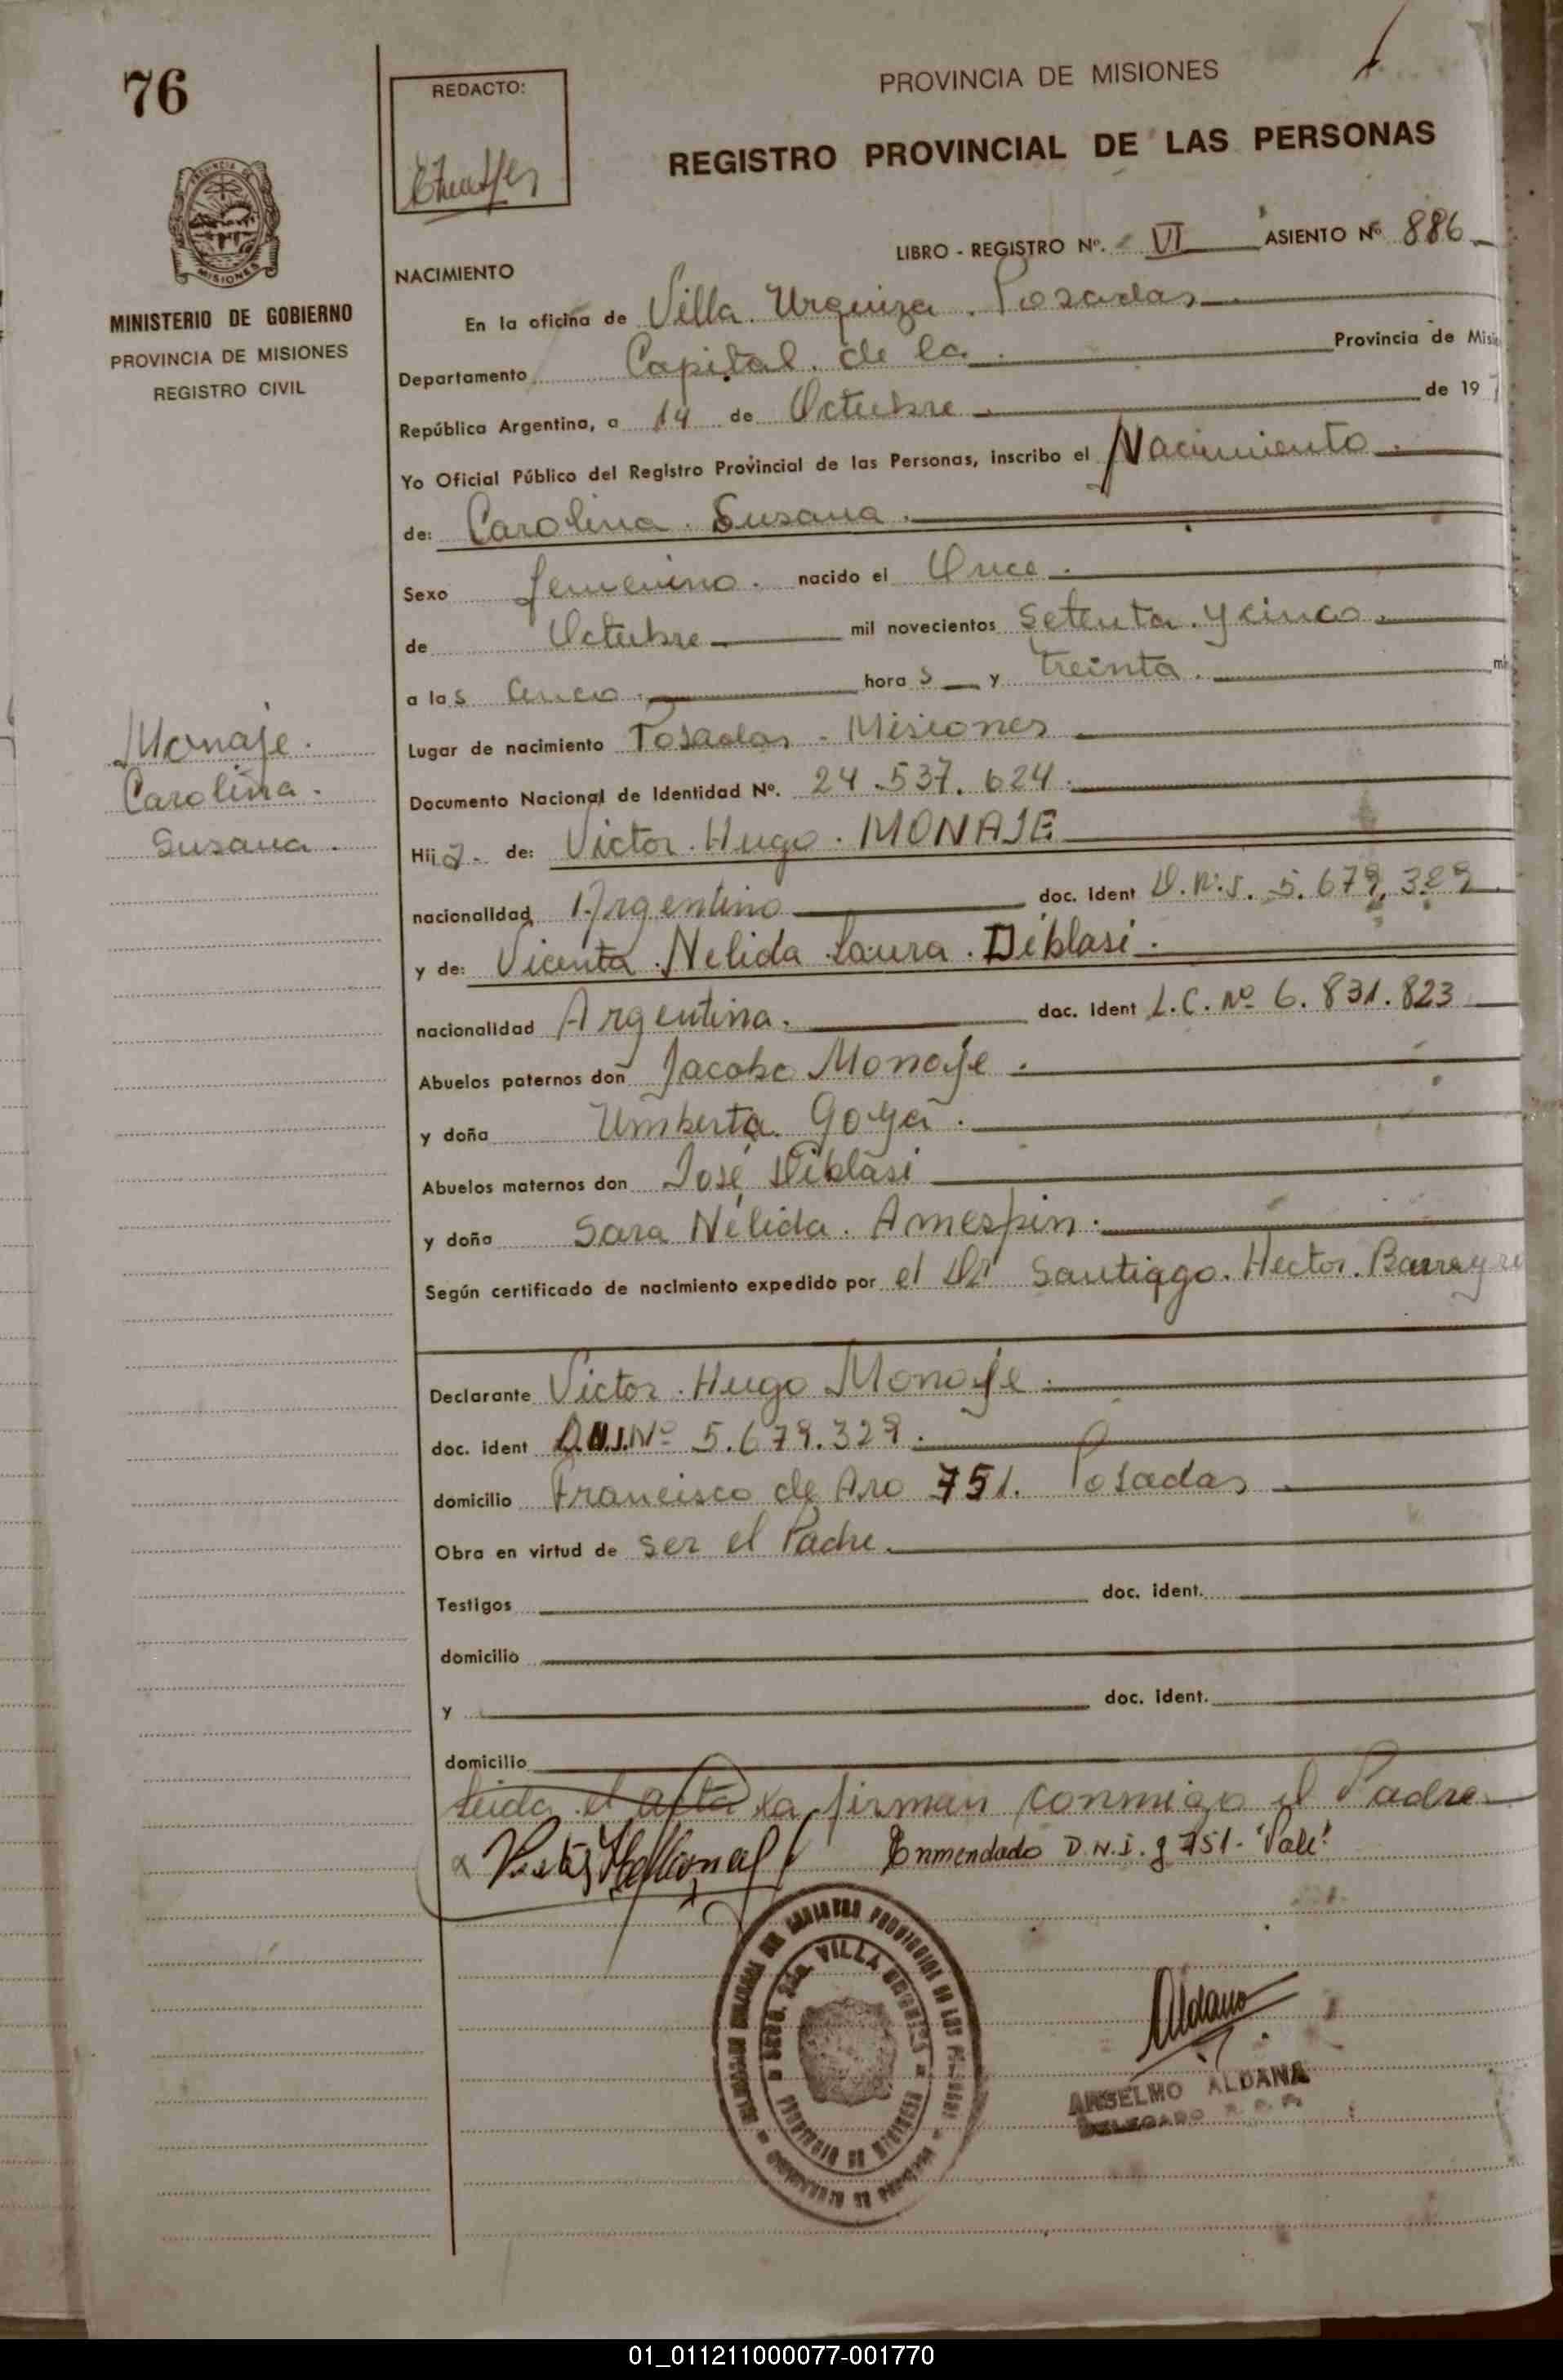 76
REDACTO:
PROVINCIA DE MISIONES
REGISTRO PROVINCIAL DE LAS PERSONAS
LIBRO - REGISTRO Nº. VI ASIENTO Nº 886
MISIONES
MINISTERIO DE GOBIERNO
PROVINCIA DE MISIONES
REGISTRO CIVIL
NACIMIENTO
En la oficina de Villa Urquiza. Posadas
Departamento Capital de la Provincia de Misi
República Argentina, a 14 de Octubre de 19
Yo Oficial Público del Registro Provincial de las Personas, inscribo el Nacimiento.
de: Carolina Susana.
Sexo femenino. nacido el Once.
de Octubre mil novecientos setenta y cinco.
a las cinco. horas y treinta.
Monaje.
Carolina.
Susana.
Lugar de nacimiento Posadas - Misiones
Documento Nacional de Identidad Nº. 24.537.624.
Hija de: Victor Hugo. MONAJE
nacionalidad Argentino doc. Ident D.N.I. 5.679.329
y de: Vicenta Nelida Laura. Diblasi.
nacionalidad Argentina. doc. Ident L.C. Nº 6.831.823
Abuelos paternos don Jacobo Monaje.
y doña Umberta Goya.
Abuelos maternos don José Diblasi
y doña Sara Nélida. Amespin.
Según certificado de nacimiento expedido por el Dr Santiago. Hector. Barreyro
Declarante Victor Hugo Monaje.
doc. ident D.N.I. Nº 5.679.329.
domicilio Francisco de Aro 751. Posadas
Obra en virtud de ser el Padre.
Testigos doc. ident.
domicilio
y doc. ident.
domicilio
Leida el acta la firman conmigo el Padre
Enmendado D.N.I. y 751- "Vale"
VILLA URQUIZA
PROVINCIA DE MISIONES
Aldana
ANSELMO ALDANA
DELEGADO R. P. P.
01_011211000077-001770